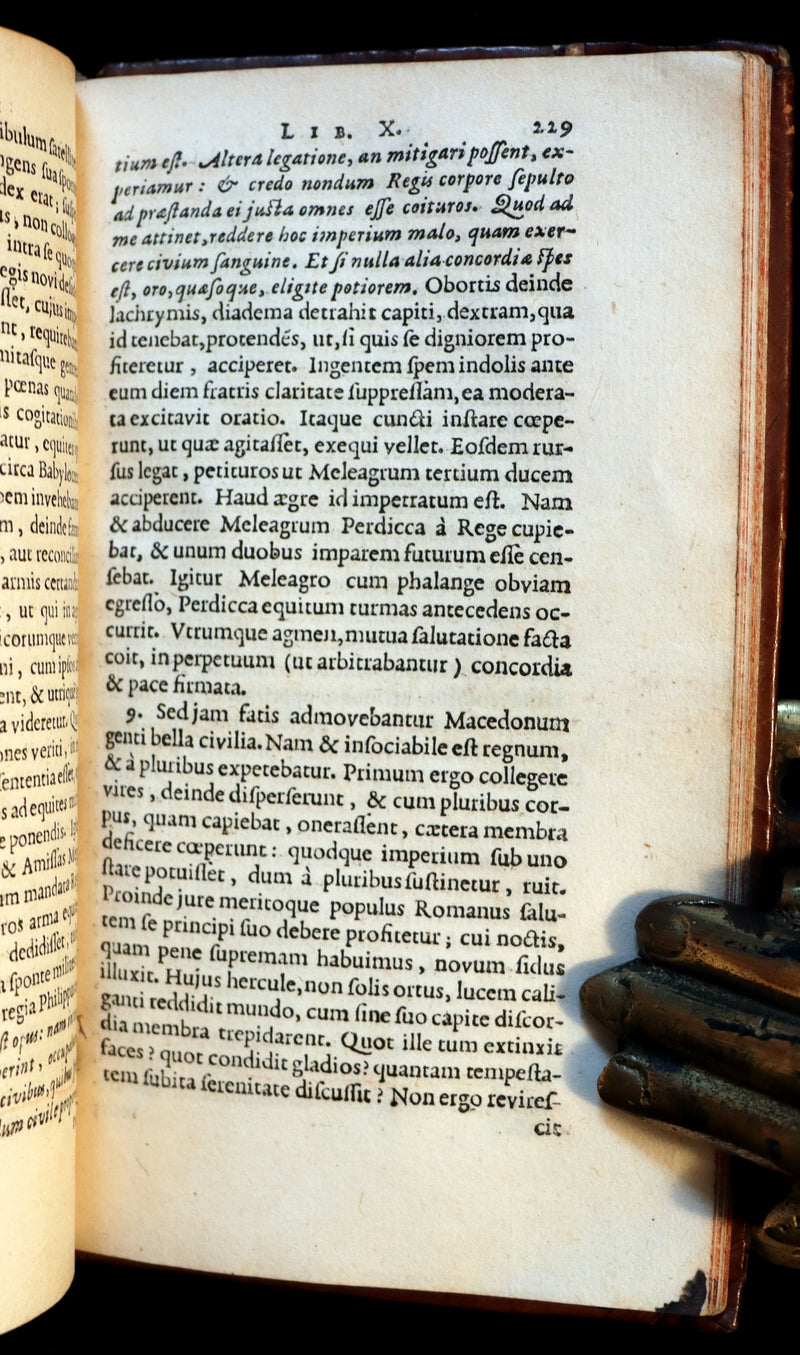 LIB. X. 229
tium eſt. Altera legatione, an mitigari poſſent, ex-
periamur: & credo nondum Regis corpore ſepulto
ad præſtanda ei juſta omnes eſſe coituros. Quod ad
me attinet, reddere hoc imperium malo, quam exer-
cere civium ſanguine. Et ſi nulla alia concordiæ ſpes
eſt, oro, quæſoque, eligite potiorem. Obortis deinde
lachrymis, diadema detrahit capiti, dextram, qua
id tenebat, protendés, ut, ſi quis ſe digniorem pro-
fiteretur, acciperet. Ingentem ſpem indolis ante
eum diem fratris claritate ſuppreſſam, ea modera-
ta excitavit oratio. Itaque cuncti inſtare cœpe-
runt, ut quæ agitaſſet, exequi vellet. Eoſdem rur-
ſus legat, petituros ut Meleagrum tertium ducem
acciperent. Haud ægre id impetratum eſt. Nam
& abducere Meleagrum Perdicca à Rege cupie-
bat, & unum duobus imparem futurum eſſe cen-
ſebat. Igitur Meleagro cum phalange obviam
egreſſo, Perdicca equitum turmas antecedens oc-
currit. Vtrumque agmen, mutua ſalutatione facta
coit, in perpetuum (ut arbitrabantur) concordia
& pace firmata.
9. Sed jam fatis admovebantur Macedonum
genti bella civilia. Nam & inſociabile eſt regnum,
& à pluribus expetebatur. Primum ergo collegere
vires, deinde diſperſerunt, & cum pluribus cor-
pus, quam capiebat, oneraſſent, cætera membra
deficere cœperunt: quodque imperium ſub uno
ſtare potuiſſet, dum à pluribus ſuſtinetur, ruit.
Proinde jure meritoque populus Romanus ſalu-
tem ſe principi ſuo debere profitetur; cui noctis,
quam pene ſupremam habuimus, novum ſidus
illuxit. Hujus hercule, non ſolis ortus, lucem cali-
ganti reddidit mundo, cum ſine ſuo capite diſcor-
dia membra trepidarent. Quot ille tum extinxit
faces? quot condidit gladios? quantam tempeſta-
tem ſubita ſerenitate diſcuſſit? Non ergo revireſ-
cit